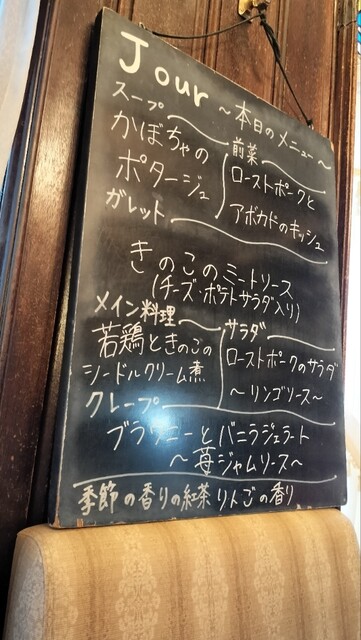 Jour ～本日のメニュー～
スープ
かぼちゃの
ポタージュ
前菜
ローストポークと
アボカドのキッシュ
ガレット
きのこのミートソース
(チーズ・ポテトサラダ入り)
メイン料理
若鶏ときのこの
シードルクリーム煮
サラダ
ローストポークのサラダ
～リンゴソース～
クレープ
ブラウニーとバニラジェラート
～苺ジャムソース～
季節の香りの紅茶 りんごの香り